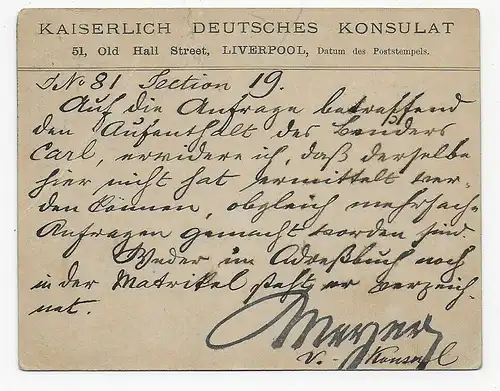 KAISERLICH DEUTSCHES KONSULAT
51, Old Hall Street, LIVERPOOL, Datum des Poststempels.
J No 81 Section 19.
Auf die Anfrage betreffend
den Aufenthalt des Benders
Carl, erwidere ich, daß derselbe
hier nicht hat ermittelt wer-
den können, obgleich mehrfach
Anfragen gemacht worden sind.
Weder im Adreßbuch noch
in der Matrikel steht er verzeich-
net.
Meyer
V. Konsul